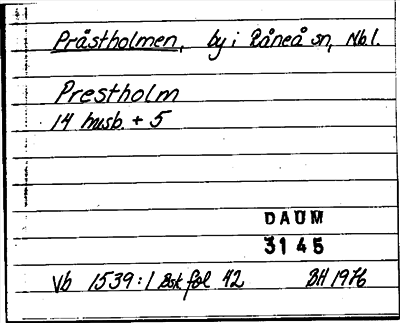 Pråstholmen, by i Råneå sn, Nb.l.
Prestholm
14 husb. + 5
DAUM
3145
Vb 1539:1 Bsk fol 42 BH 1976